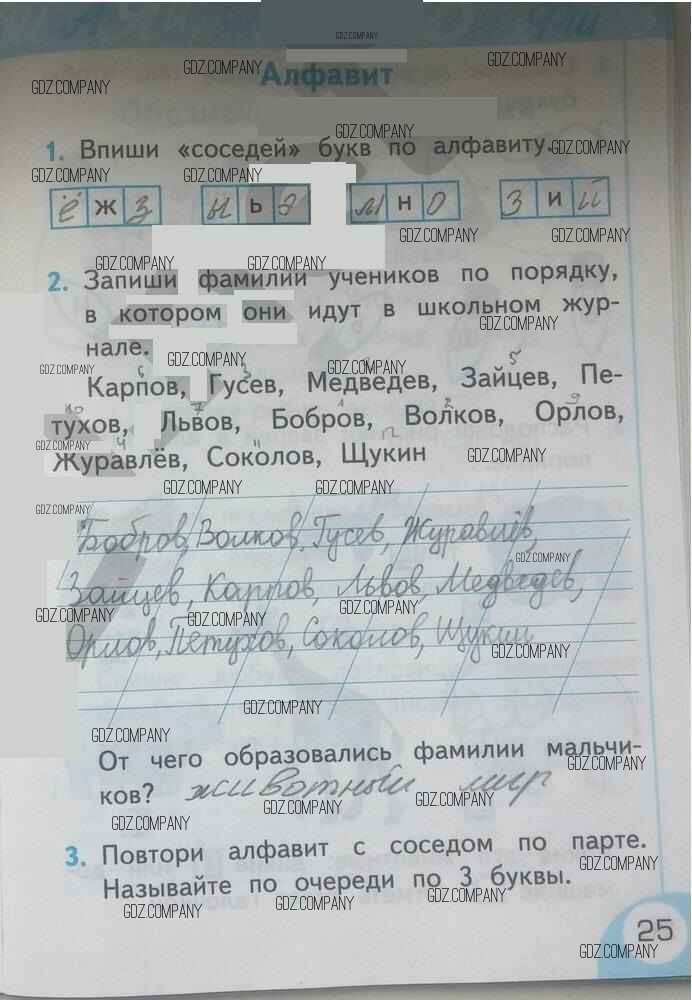 Алфавит
1. Впиши «соседей» букв по алфавиту.
ё ж з ы ь э м н о з и й
2. Запиши фамилии учеников по порядку,
в котором они идут в школьном жур-
нале.
6 3 8 5
Карпов, Гусев, Медведев, Зайцев, Пе-
10 7 1 2 9
тухов, Львов, Бобров, Волков, Орлов,
4 11 12
Журавлёв, Соколов, Щукин
Бобров, Волков, Гусев, Журавлёв,
Зайцев, Карпов, Львов, Медведев,
Орлов, Петухов, Соколов, Щукин
От чего образовались фамилии мальчи-
ков? животный мир
3. Повтори алфавит с соседом по парте.
Называйте по очереди по 3 буквы.
25